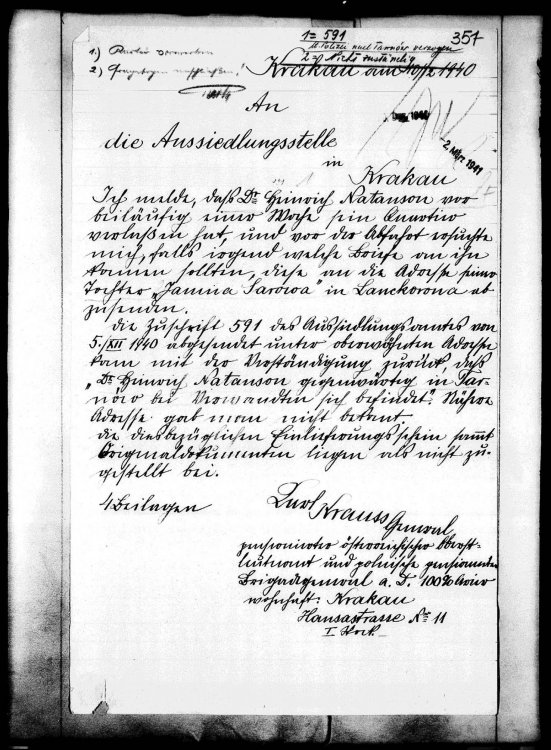 1= 591
351
1.)
2.)
Krakau am 10/12 1940
An
die Aussiedlungsstelle
in
Krakau
2. Mrz. 1941
Ich melde, daß Dr Heinrich Natanson vor
beiläufig einer Woche sein Quartier
verlaßen hat, und vor der Abfahrt ersuchte
mich, falls irgend welche Briefe an ihn
kommen sollten, diese an die Adresse seiner
Tochter „Janina Sarowa" in Lanckorona ab
zusenden.
Die Zuschrift 591 des Aussiedlungsamtes von
5./XII 1940 abgesendet unter oberwähnten Adresse
kam mit der Verständigung zurück, daß
„Dr Heinrich Natanson gegenwärtig in Tar-
nów bei Verwandten sich befindet". Nähere
Adresse gab man nicht bekant
die diesbezüglichen Einlieferungsschein sammt
Originaldokumenten liegen als nicht zu-
gestellt bei.
4 Beilagen
Karl Krauss General
pensionierter österreichischer Oberst-
leutnant und polnische pensionierter
Brigadegeneral a. D. 100% Arier
wohnhaft: Krakau
Hansastrasse Nr 11
I Stock